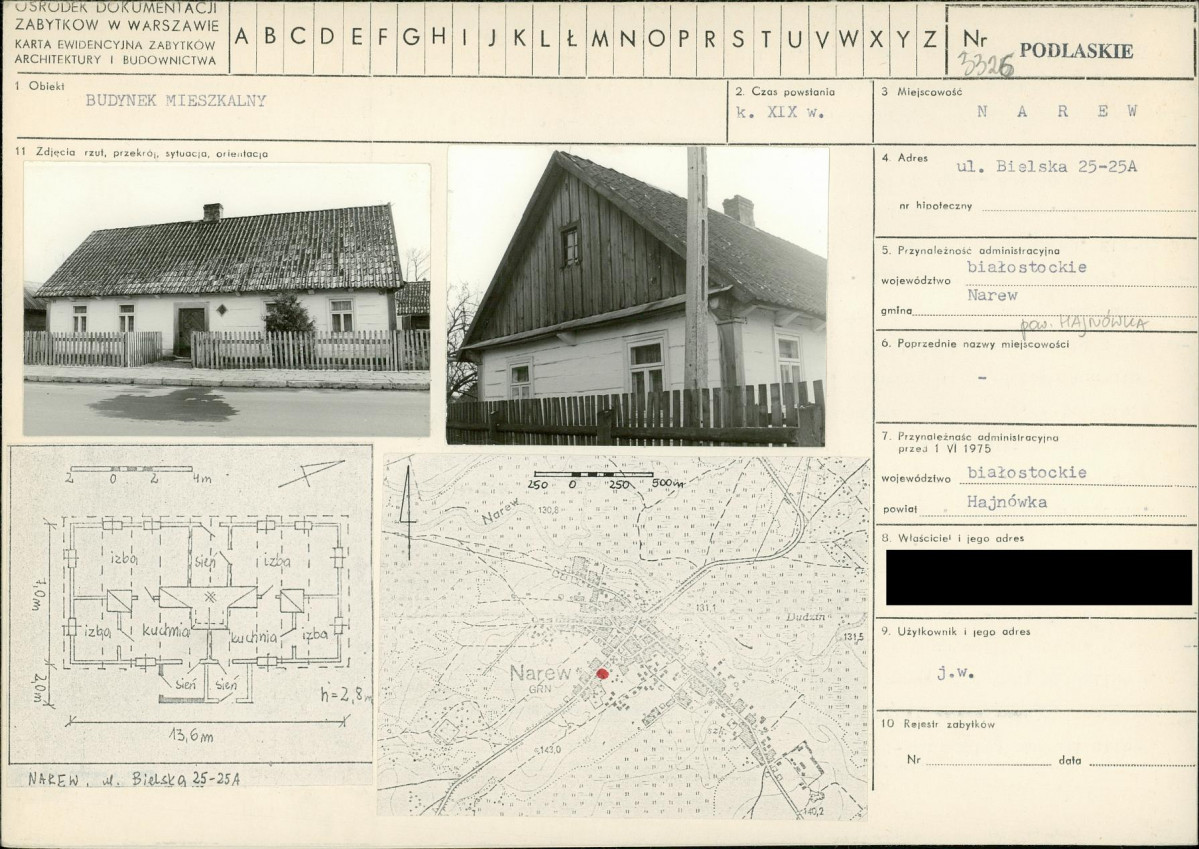 OŚRODEK DOKUMENTACJI
ZABYTKÓW W WARSZAWIE
KARTA EWIDENCYJNA ZABYTKÓW
ARCHITEKTURY I BUDOWNICTWA
A B C D E F G H I J K L Ł M N O P R S T U V W X Y Z
Nr
3326
PODLASKIE
1 Obiekt
BUDYNEK MIESZKALNY
2. Czas powstania
k. XIX w.
3 Miejscowość
N A R E W
11 Zdjęcia rzut, przekrój, sytuacja, orientacja
4. Adres
ul. Bielska 25-25A
nr hipoteczny
5. Przynależność administracyjna
województwo białostockie
gmina Narew
pow. HAJNÓWKA
6. Poprzednie nazwy miejscowości
-
7. Przynależność administracyjna
przed 1 VI 1975
województwo białostockie
powiat Hajnówka
8. Właściciel i jego adres
9. Użytkownik i jego adres
j.w.
10 Rejestr zabytków
Nr data
2 0 2 4m
izba sień izba
7,0m
izba kuchnia kuchnia izba
sień sień
2,0m
h=2,8m
13,6m
NAREW, ul. Bielska 25-25A
250 0 250 500m
Narew
130,8
131,1
Dudzin
131,5
Narew
GRN
143,0
szk
140,2